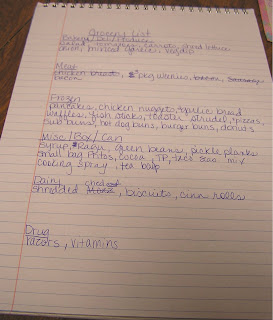 Grocery List
Banana / Deli / Produce
salad tomatoes, carrots, shred lettuce
onion, minced garlic, veggie
Meat
chicken breast, 2 pkg weenies, bacon, sausage
bacon
Frozen
pancakes, chicken nugget, garlic bread
waffles, fish sticks, toaster strudel, pizzas,
sub buns, hot dog buns, burger buns, donuts
Misc / Box / Can
Syrup, Ragu, green beans, pickle planks
small bag Fritos, cocoa, TP, taco sea. mix
cooking spray, tea bags
Dairy
shredded ched, biscuits, cinn rolls
Drug
razors, vitamins